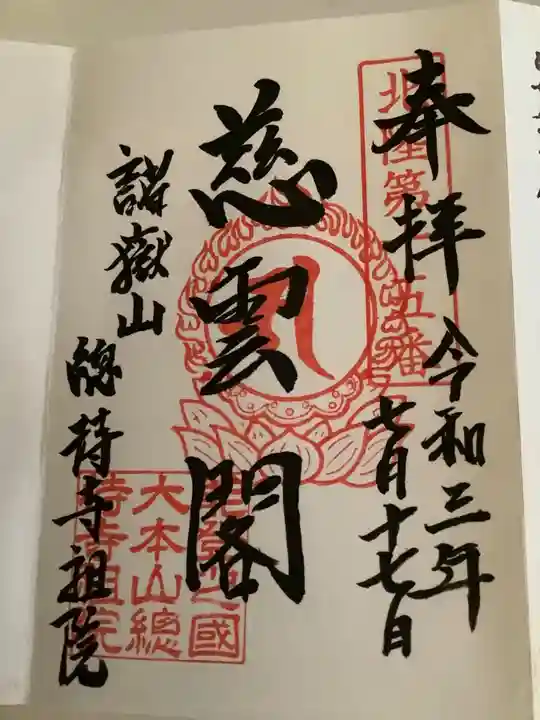 奉拝
令和三年
七月十七日
北陸第十五番
慈雲閣
諸嶽山
總持寺祖院
能登國
大本山總
持寺祖院